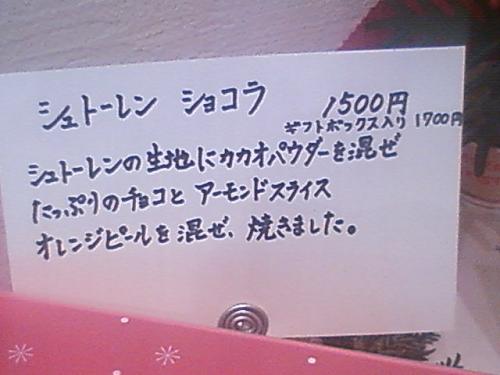 シュトーレン ショコラ 1500円
ギフトボックス入り 1700円
シュトーレンの生地にカカオパウダーを混ぜ
たっぷりのチョコと アーモンドスライス
オレンジピールを混ぜ、焼きました。